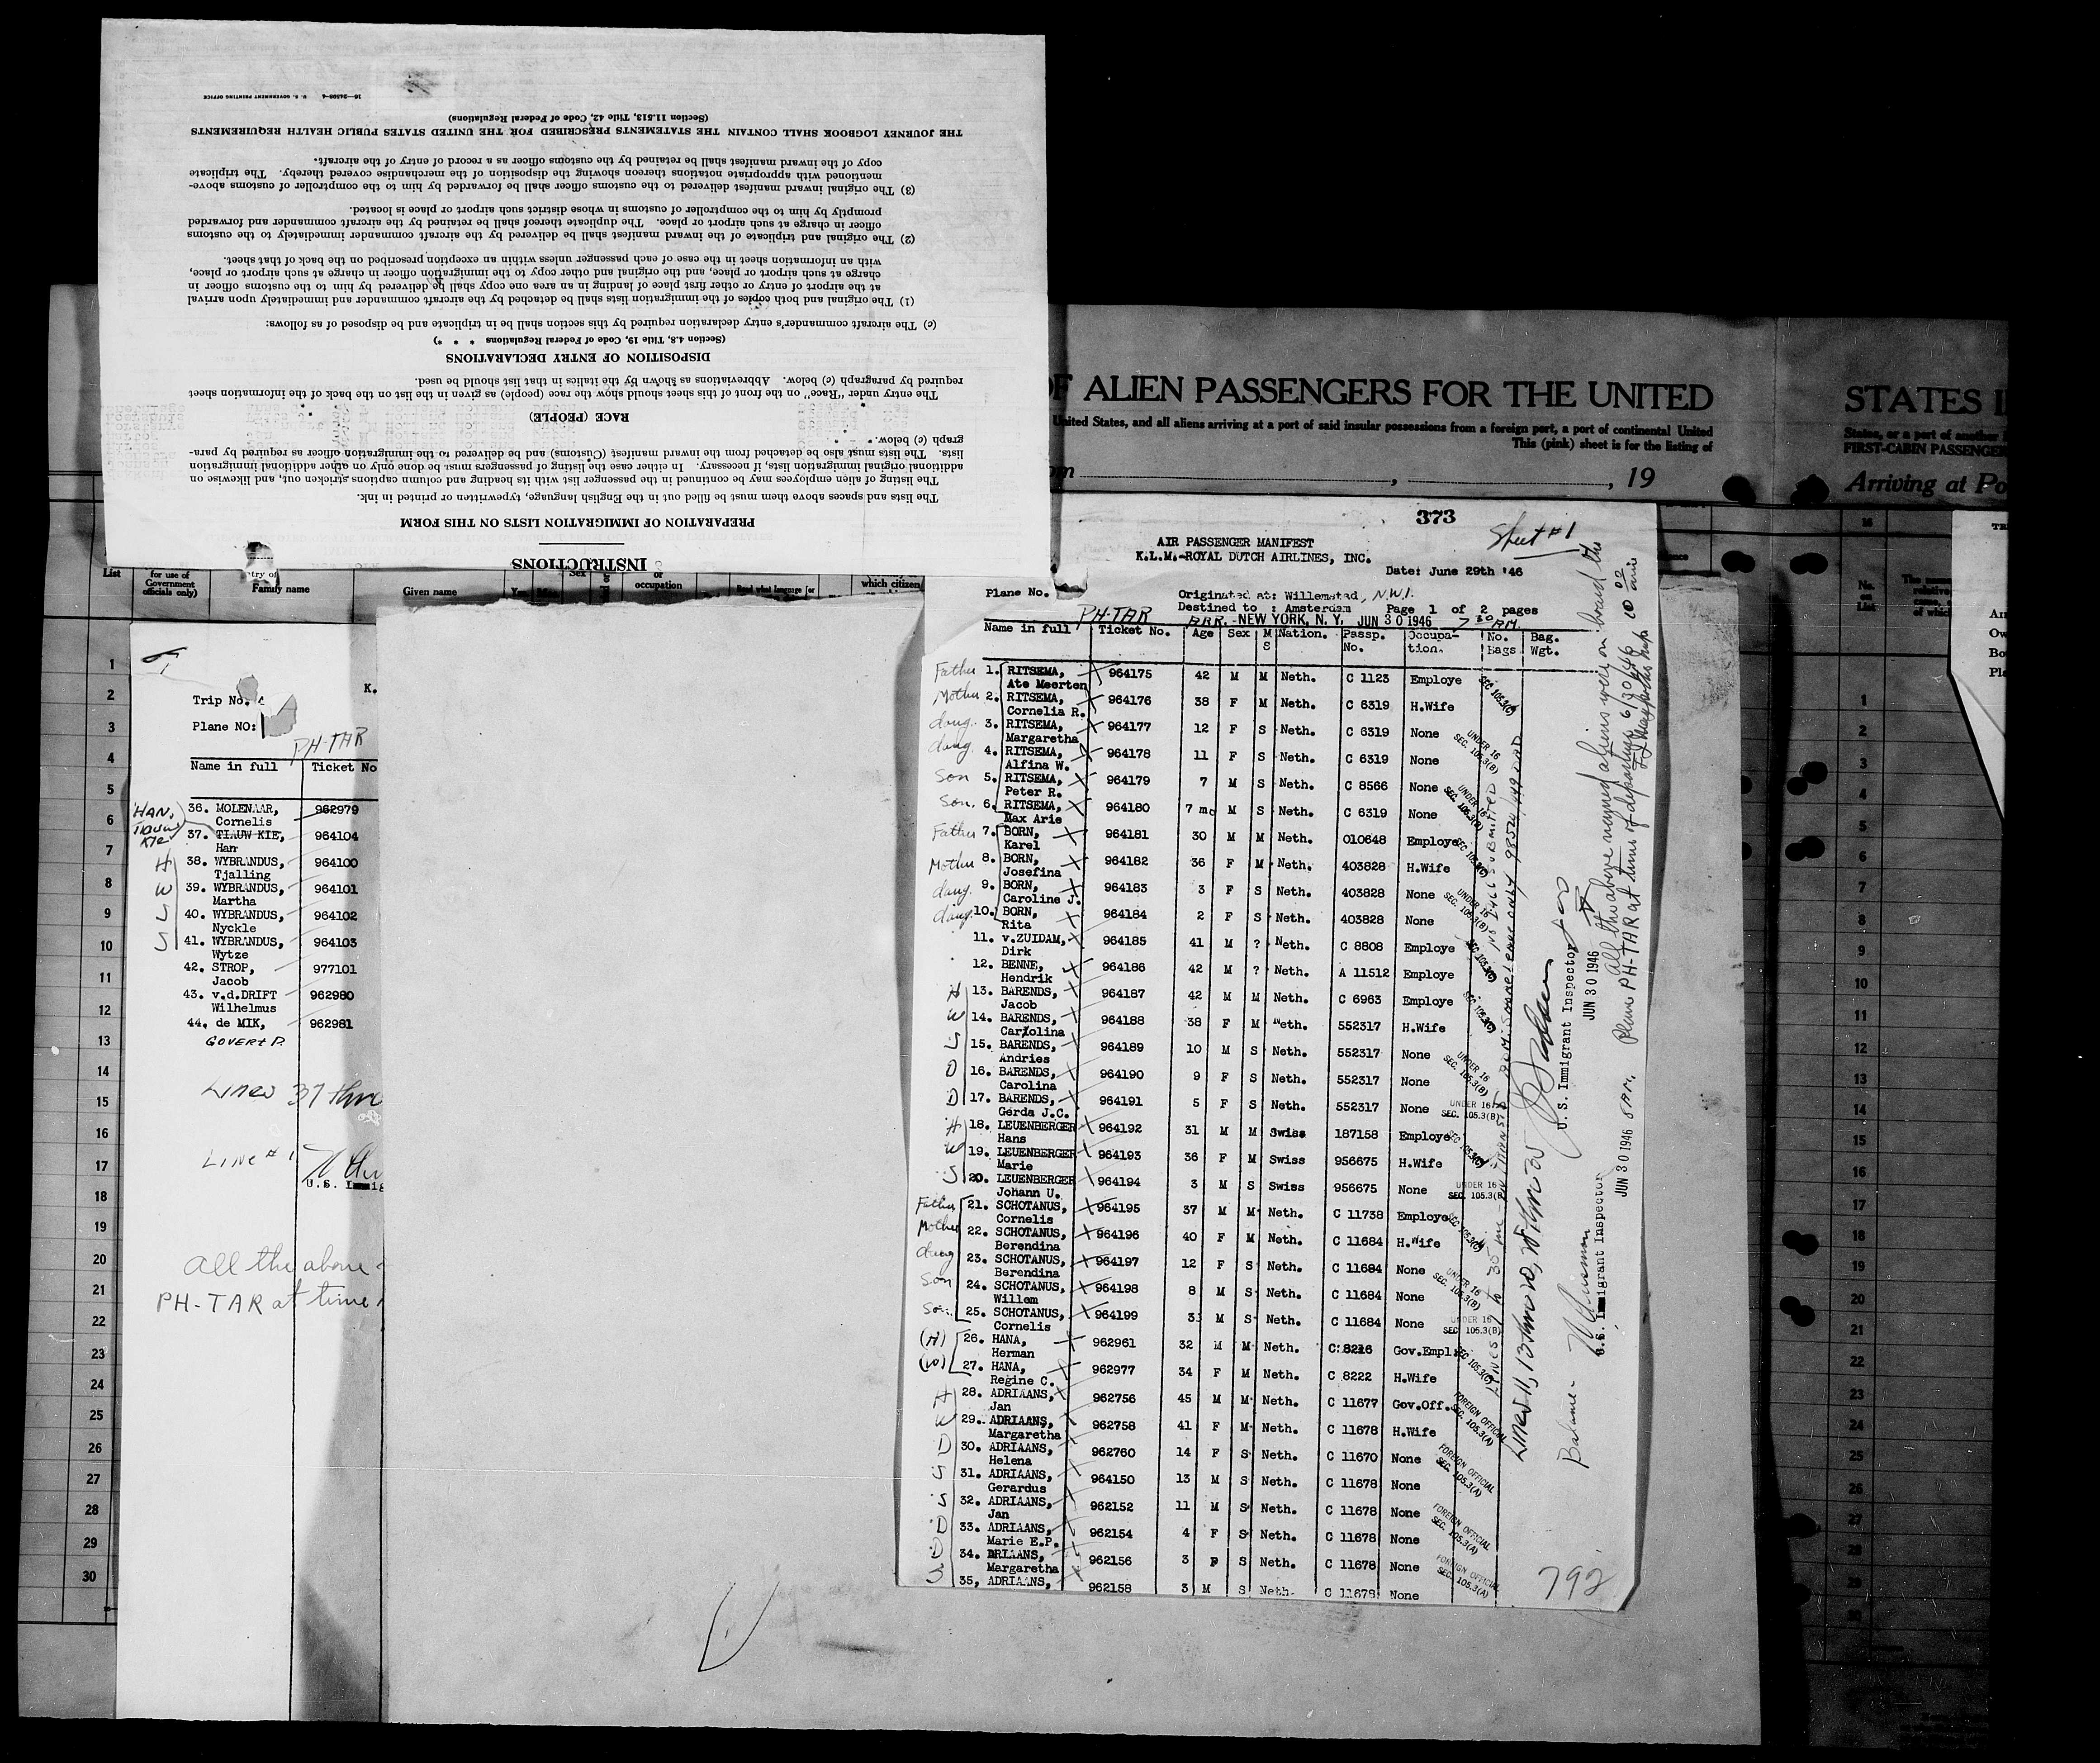 INSTRUCTIONS
PREPARATION OF IMMIGRATION LISTS ON THIS FORM
The lists and spaces above them must be filled out in the English language, typewritten or printed in ink.
The listing of alien employees may be continued in the passenger list with its heading and column captions stricken out, and likewise on
additional original immigration lists, if necessary. In either case the listing of passengers must be done only on other additional immigration
lists. The lists must also be detached from the inward manifest (Customs) and be delivered to the immigration officer as required by para-
graph (c) below.
RACE (PEOPLE)
The entry under "Race" on the front of this sheet should show the race (people) as given in the list on the back of the information sheet
required by paragraph (c) below. Abbreviations as shown by the italics in that list should be used.
DISPOSITION OF ENTRY DECLARATIONS
(Section 4.8, Title 19, Code of Federal Regulations * * *)
(c) The aircraft commander's entry declaration required by this section shall be in triplicate and be disposed of as follows:
(1) The original and both copies of the immigration lists shall be detached by the aircraft commander and immediately upon arrival
at the airport of entry or other first place of landing in an area one copy shall be delivered by him to the customs officer in
charge at such airport or place, and the original and other copy to the immigration officer in charge at such airport or place,
with an information sheet in the case of each passenger unless within an exception prescribed on the back of that sheet.
(2) The original and triplicate of the inward manifest shall be delivered by the aircraft commander immediately to the customs
officer in charge at such airport or place. The duplicate thereof shall be retained by the aircraft commander and forwarded
promptly by him to the comptroller of customs in whose district such airport or place is located.
(3) The original inward manifest delivered to the customs officer shall be forwarded by him to the comptroller of customs above-
mentioned with appropriate notations thereon showing the disposition of the merchandise covered thereby. The triplicate
copy of the inward manifest shall be retained by the customs officer as a record of entry of the aircraft.
THE JOURNEY LOGBOOK SHALL CONTAIN THE STATEMENTS PRESCRIBED FOR THE UNITED STATES PUBLIC HEALTH REQUIREMENTS
(Section 11.513, Title 42, Code of Federal Regulations)
16—24598-4 U. S. GOVERNMENT PRINTING OFFICE
OF ALIEN PASSENGERS FOR THE UNITED
United States, and all aliens arriving at a port of said insular possessions from a foreign port, a port of continental United
This (pink) sheet is for the listing of
, 19
STATES I
States, or a port of another
FIRST-CABIN PASSENGE
Arriving at Po
List
for use of
Government
officials only)
Family name
Given name
Sex
or
occupation
Read what language [or
which citizen
Trip No.
K.
Plane NO:
PH-TAR
Name in full Ticket No
HAN,
Tiauw
Kie
36. MOLENAAR, 962979
Cornelis
37. TIAUW KIE, 964104
Han
H 38. WYBRANDUS, 964100
Tjalling
W 39. WYBRANDUS, 964101
Martha
S 40. WYBRANDUS, 964102
Nyckle
S 41. WYBRANDUS, 964103
Wytze
42. STROP, 977101
Jacob
43. v.d.DRIFT 962980
Wilhelmus
44. de MIK, 962981
GOVERT P.
Lines 37 thru
Line # 1
U.S. Immig
All the above
PH-TAR at time
373
Sheet #1
AIR PASSENGER MANIFEST
K.L.M.-ROYAL DUTCH AIRLINES, INC.
Date: June 29th '46
Plane No.
PH-TAR
Originated at: Willemstad, N.W.I.
Destined to : Amsterdam Page 1 of 2 pages
ARR. -NEW YORK, N. Y. JUN 30 1946 7 30 AM.
Name in full Ticket No. Age Sex M S Nation. Passp. No. Occupa-tion. No. Bags Bag. Wgt.
Father 1. RITSEMA, 964175 42 M M Neth. C 1123 Employe
Ate Meerten
Mother 2. RITSEMA, 964176 38 F M Neth. C 6319 H.Wife
Cornelia R.
daug. 3. RITSEMA, 964177 12 F S Neth. C 6319 None
Margaretha
daug. 4. RITSEMA, 964178 11 F S Neth. C 6319 None
Alfina W.
Son 5. RITSEMA, 964179 7 M S Neth. C 8566 None
Peter R.
Son. 6. RITSEMA, 964180 7 mo M S Neth. C 6319 None
Max Arie
Father 7. BORN, 964181 30 M M Neth. 010648 Employe
Karel
Mother 8. BORN, 964182 36 F M Neth. 403828 H.Wife
Josefina
daug. 9. BORN, 964183 3 F S Neth. 403828 None
Caroline J.
daug. 10. BORN, 964184 2 F S Neth. 403828 None
Rita
11. v.ZUIDAM, 964185 41 M ? Neth. C 8808 Employe
Dirk
12. BENNE, 964186 42 M ? Neth. A 11512 Employe
Hendrik
H 13. BARENDS, 964187 42 M M Neth. C 6963 Employe
Jacob
W 14. BARENDS, 964188 38 F M Neth. 552317 H.Wife
Carolina
S 15. BARENDS, 964189 10 M S Neth. 552317 None
Andries
D 16. BARENDS, 964190 9 F S Neth. 552317 None
Carolina
D 17. BARENDS, 964191 5 F S Neth. 552317 None
Gerda J.C.
H 18. LEUENBERGER 964192 31 M M Swiss 187158 Employe
Hans
W 19. LEUENBERGER 964193 36 F M Swiss 956675 H.Wife
Marie
S 20. LEUENBERGER 964194 3 M S Swiss 956675 None
Johann U.
Father 21. SCHOTANUS, 964195 37 M M Neth. C 11738 Employe
Cornelis
Mother 22. SCHOTANUS, 964196 40 F M Neth. C 11684 H.Wife
Berendina
daug 23. SCHOTANUS, 964197 12 F S Neth. C 11684 None
Berendina
Son 24. SCHOTANUS, 964198 8 M S Neth. C 11684 None
Willem
Son 25. SCHOTANUS, 964199 3 M S Neth. C 11684 None
Cornelis
(H) 26. HANA, 962961 32 M M Neth. C 8216 Gov.Empl.
Herman
(W) 27. HANA, 962977 34 F M Neth. C 8222 H.Wife
Regine C.
H 28. ADRIAANS, 962756 45 M M Neth. C 11677 Gov.Off.
Jan
W 29. ADRIAANS, 962758 41 F M Neth. C 11678 H.Wife
Margaretha
D 30. ADRIAANS, 962760 14 F S Neth. C 11670 None
Helena
S 31. ADRIAANS, 964150 13 M S Neth. C 11678 None
Gerardus
S 32. ADRIAANS, 962152 11 M S Neth. C 11678 None
Jan
D 33. ADRIAANS, 962154 4 F S Neth. C 11678 None
Marie E.P.
D 34. DRIAANS, 962156 3 F S Neth. C 11678 None
Margaretha
S 35, ADRIAANS, 962158 3 M S Neth. C 11678 None
UNDER 16
SEC. 105.3(B)
FOREIGN OFFICIAL
SEC. 105.3(A)
Lines 11, 13 thru 20, 28 thru 35
U. S. Immigrant Inspector
JUN 30 1946
Balance -
U.S. Immigrant Inspector
JUN 30 1946
All the above named aliens were on board the
Plane PH-TAR at time of departure 6/30/46 10 00
792